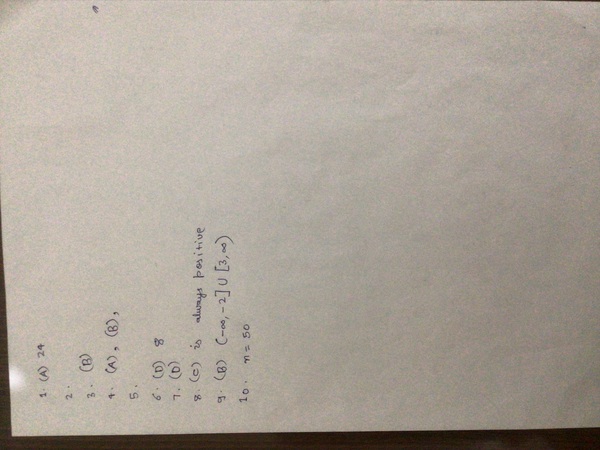 1. (A) 24
2.
3. (B)
4. (A), (B),
5.
6. (D) 8
7. (D)
8. (C) is always positive
9. (B) (-∞, -2] ∪ [3, ∞)
10. n = 50